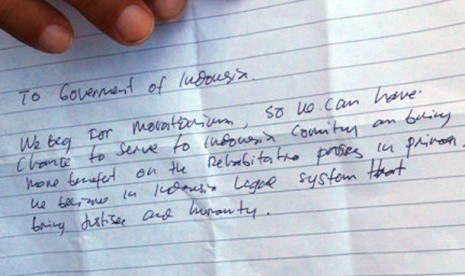 To Goverment of Indonesia.
We beg for moratorium, so we can have
Chance to serve to Indonesia Country an being
more benefit on the Rehabilitation proses in prison.
We believe in Indonesia Legal system that
bring Justice and humanty.